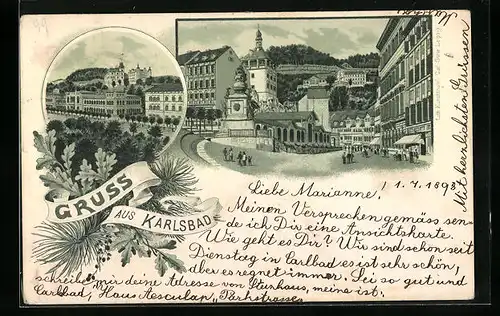 GRUSS
AUS KARLSBAD
Liebe Marianne! 1. 7. 1898
Meinen Versprechen gemäss sen-
de ich Dir eine Ansichtskarte
Wie geht es Dir? Wir sind schon seit
Dienstag in Carlbad es ist sehr schön,
aber es regnet immer. Sei so gut und
schreibe mir deine Adresse von Sturhaus, meine ist.
Carlbad, Haus Aesculap „Parkstrasse
Mit herzlichsten Grüssen